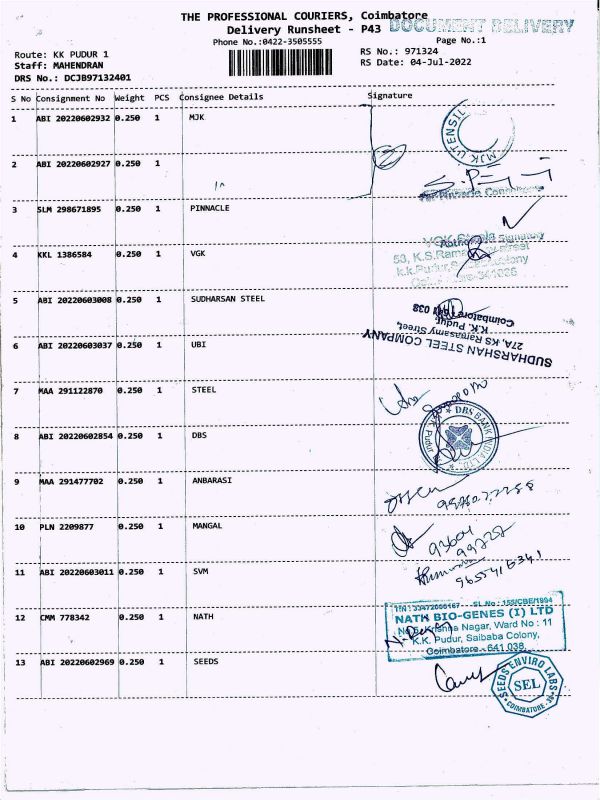 THE PROFESSIONAL COURIERS, Coimbatore
DOCUMENT DELIVERY
Delivery Runsheet - P43
Phone No.:0422-3505555
Page No.:1
Route: KK PUDUR 1
RS No.: 971324
Staff: MAHENDRAN
RS Date: 04-Jul-2022
DRS No.: DCJB97132401
S No Consignment No Weight PCS Consignee Details Signature
1 ABI 20220602932 0.250 1 MJK
MJK UTENSIL
2 ABI 20220602927 0.250 1
3 SLM 298671895 0.250 1 PINNACLE
4 KKL 1386584 0.250 1 VGK
53, K.S.Rama
5 ABI 20220603008 0.250 1 SUDHARSAN STEEL
SUDHARSHAN STEEL COMPANY
27A, KS Ramasamy Street,
K.K. Pudur,
Coimbatore - 641 038
6 ABI 20220603037 0.250 1 UBI
7 MAA 291122870 0.250 1 STEEL
8 ABI 20220602854 0.250 1 DBS
DBS BANK INDIA LTD
K.K. Pudur
9 MAA 291477702 0.250 1 ANBARASI
10 PLN 2209877 0.250 1 MANGAL
11 ABI 20220603011 0.250 1 SVM
12 CMM 778342 0.250 1 NATH
NATH BIO-GENES (I) LTD
Krishna Nagar, Ward No : 11
K.K. Pudur, Saibaba Colony,
Coimbatore - 641 038.
13 ABI 20220602969 0.250 1 SEEDS
SEEDS ENVIRO LABS
SEL
COIMBATORE - 38